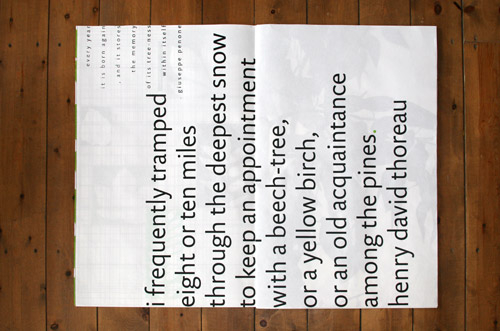 every year
it is born again
, and it stores
the memory
of its tree-ness
within itself
giuseppe penone
i frequently tramped
eight or ten miles
through the deepest snow
to keep an appointment
with a beech-tree,
or a yellow birch,
or an old acquaintance
among the pines.
henry david thoreau